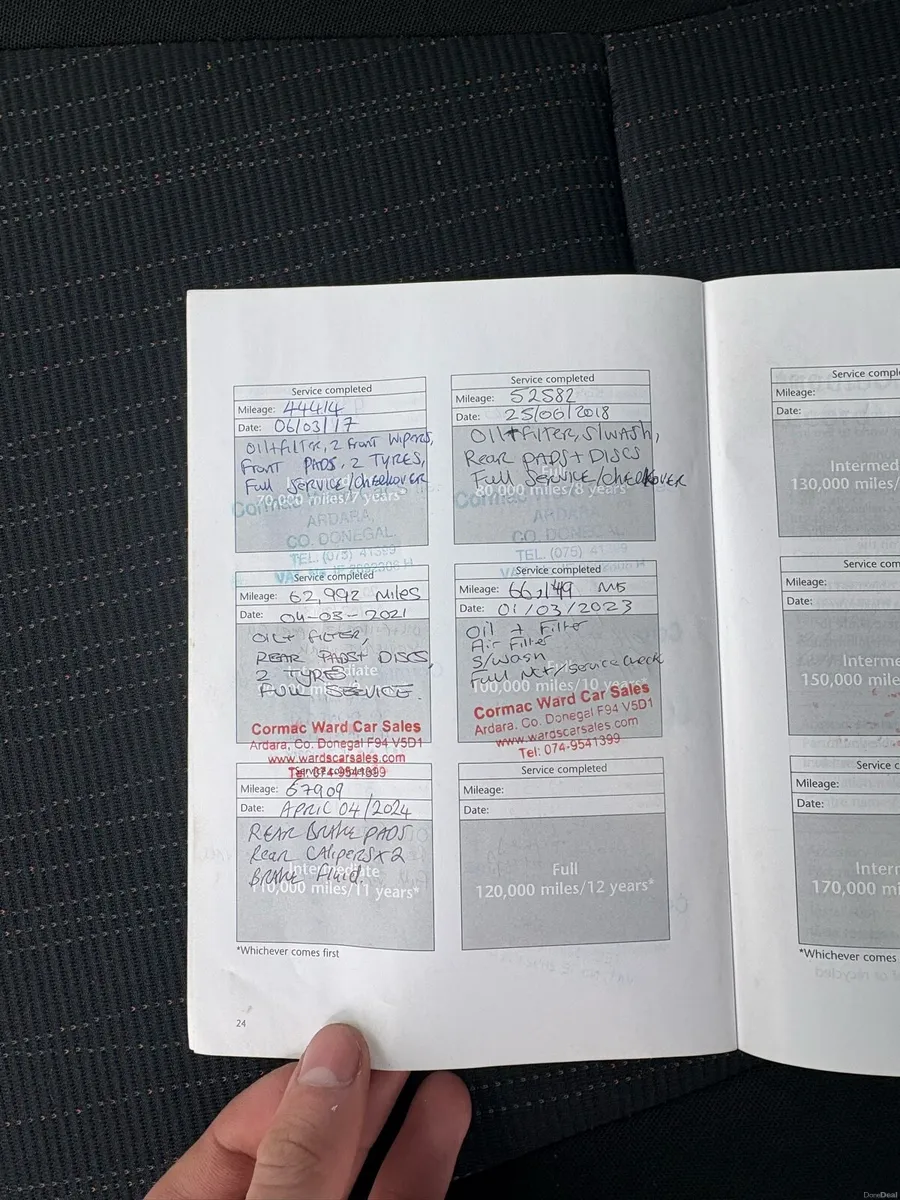 Service completed
Mileage: 44414
Date: 06/03/17
Oil+filter, 2 Front Wipers,
Front PADS, 2 TYRES,
Full SERVICE/CheckOVER
70,000 miles/7 years*
Cormac
ARDARA,
CO. DONEGAL.
TEL. (075) 41399
Service completed
Mileage: 52582
Date: 25/06/2018
Oil+Filter, S/WASH,
Rear PADS+DISCS
Full Service/CheckOVER
80,000 miles/8 years*
Cormac
ARDARA,
CO. DONEGAL.
TEL. (075) 41399
Service completed
Mileage: 62,992 MILES
Date: 04-03-2021
OIL+ FILTER,
REAR PADS+ DISCS,
2 TYRES
FULL SERVICE.
Cormac Ward Car Sales
Ardara, Co. Donegal F94 V5D1
www.wardscarsales.com
Tel: 074-9541399
Service completed
Mileage: 66,149 MLS
Date: 01/03/2023
Oil + Filter
Air Filter
S/Wash
Full NCT/Service Check
100,000 miles/10 years*
Cormac Ward Car Sales
Ardara, Co. Donegal F94 V5D1
www.wardscarsales.com
Tel: 074-9541399
Service completed
Mileage: 67909
Date: APRIL 04/2024
REAR BRAKE PADS
Rear CALIPERS x 2
BRAKE Fluid.
Intermediate
110,000 miles/11 years*
Service completed
Mileage:
Date:
Full
120,000 miles/12 years*
*Whichever comes first
24
Service comple
Mileage:
Date:
Intermed
130,000 miles/
Service com
Mileage:
Date:
Interme
150,000 mile
Service c
Mileage:
Date:
Inter
170,000 mi
*Whichever comes
DoneDeal